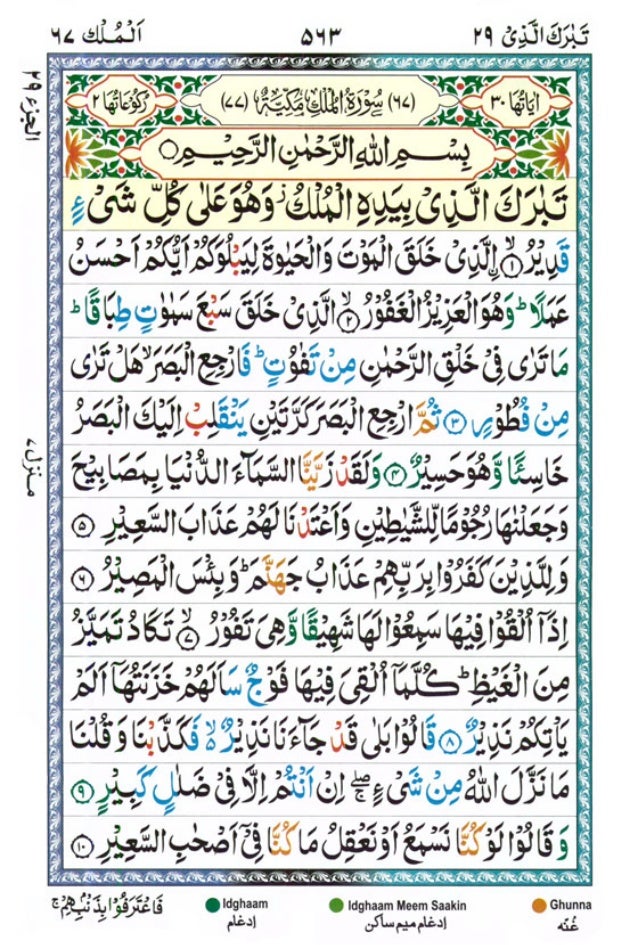 تَبٰرَكَ الَّذِیْ ٢٩ ٥٦٣ اَلْمُلْك ٦٧
اٰیَاتُهَا ٣٠ (٦٧) سُوْرَةُ الْمُلْكِ مَكِّیَّةٌ (٧٧) رُكُوْعَاتُهَا ٢
بِسْمِ اللهِ الرَّحْمٰنِ الرَّحِیْمِ
تَبٰرَكَ الَّذِیْ بِیَدِهِ الْمُلْكُ ز وَهُوَ عَلٰی كُلِّ شَیْءٍ
قَدِیْرُ ۙ١ اِ۟لَّذِیْ خَلَقَ الْمَوْتَ وَالْحَیٰوةَ لِیَبْلُوَكُمْ اَیُّكُمْ اَحْسَنُ
عَمَلًا ؕ وَهُوَ الْعَزِیْزُ الْغَفُوْرُ ۙ٢ الَّذِیْ خَلَقَ سَبْعَ سَمٰوٰتٍ طِبَاقًا ؕ
مَا تَرٰی فِیْ خَلْقِ الرَّحْمٰنِ مِنْ تَفٰوُتٍ ؕ فَارْجِعِ الْبَصَرَ ۙ هَلْ تَرٰی
مِنْ فُطُوْرٍ ٣ ثُمَّ ارْجِعِ الْبَصَرَ كَرَّتَیْنِ یَنْقَلِبْ اِلَیْكَ الْبَصَرُ
خَاسِئًا وَّهُوَ حَسِیْرٌ ٤ وَلَقَدْ زَیَّنَّا السَّمَآءَ الدُّنْیَا بِمَصَابِیْحَ
وَجَعَلْنٰهَا رُجُوْمًا لِّلشَّیٰطِیْنِ وَاَعْتَدْنَا لَهُمْ عَذَابَ السَّعِیْرِ ٥
وَلِلَّذِیْنَ كَفَرُوْا بِرَبِّهِمْ عَذَابُ جَهَنَّمَ ؕ وَبِئْسَ الْمَصِیْرُ ٦
اِذَاۤ اُلْقُوْا فِیْهَا سَمِعُوْا لَهَا شَهِیْقًا وَّهِیَ تَفُوْرُ ۙ٧ تَكَادُ تَمَیَّزُ
مِنَ الْغَیْظِ ؕ كُلَّمَاۤ اُلْقِیَ فِیْهَا فَوْجٌ سَاَلَهُمْ خَزَنَتُهَاۤ اَلَمْ
یَاْتِكُمْ نَذِیْرٌ ٨ قَالُوْا بَلٰی قَدْ جَآءَنَا نَذِیْرٌ ۙ۬ فَكَذَّبْنَا وَقُلْنَا
مَا نَزَّلَ اللهُ مِنْ شَیْءٍ ۚۖ اِنْ اَنْتُمْ اِلَّا فِیْ ضَلٰلٍ كَبِیْرٍ ٩
وَقَالُوْا لَوْ كُنَّا نَسْمَعُ اَوْ نَعْقِلُ مَا كُنَّا فِیْۤ اَصْحٰبِ السَّعِیْرِ ١٠
فَاعْتَرَفُوْا بِذَنْۢبِهِمْ ۚ
Idghaam
ادغام
Idghaam Meem Saakin
ادغام میم ساکن
Ghunna
غُنّه
الجزء ٢٩
منزل ٧